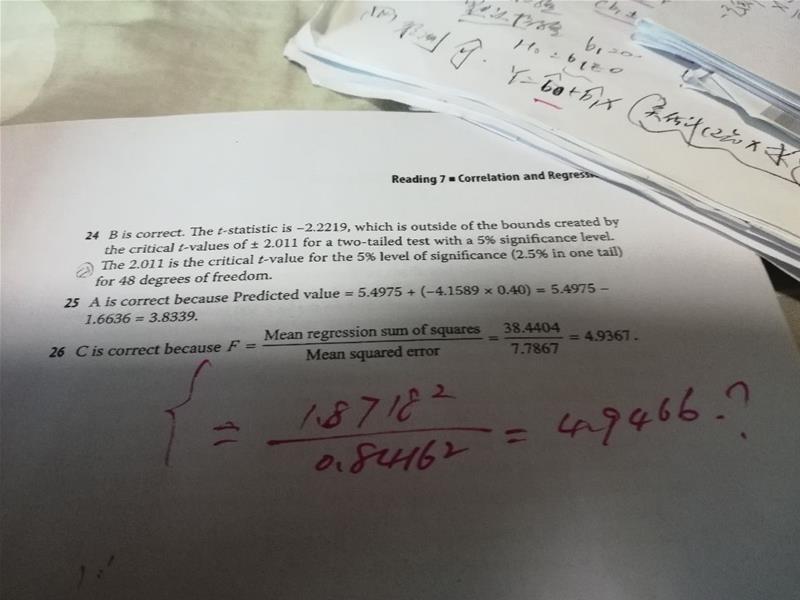 b₁=0
H₀=b₁=0
Ŷ=b̂0+b̂₁X
Reading 7 ■ Correlation and
24 B is correct. The t-statistic is −2.2219, which is outside of the bounds created by
the critical t-values of ± 2.011 for a two-tailed test with a 5% significance level.
The 2.011 is the critical t-value for the 5% level of significance (2.5% in one tail)
for 48 degrees of freedom.
25 A is correct because Predicted value = 5.4975 + (−4.1589 × 0.40) = 5.4975 −
1.6636 = 3.8339.
26 C is correct because F = Mean regression sum of squares / Mean squared error = 38.4404 / 7.7867 = 4.9367.
= 1.8718² / 0.8416² = 4.9466.?